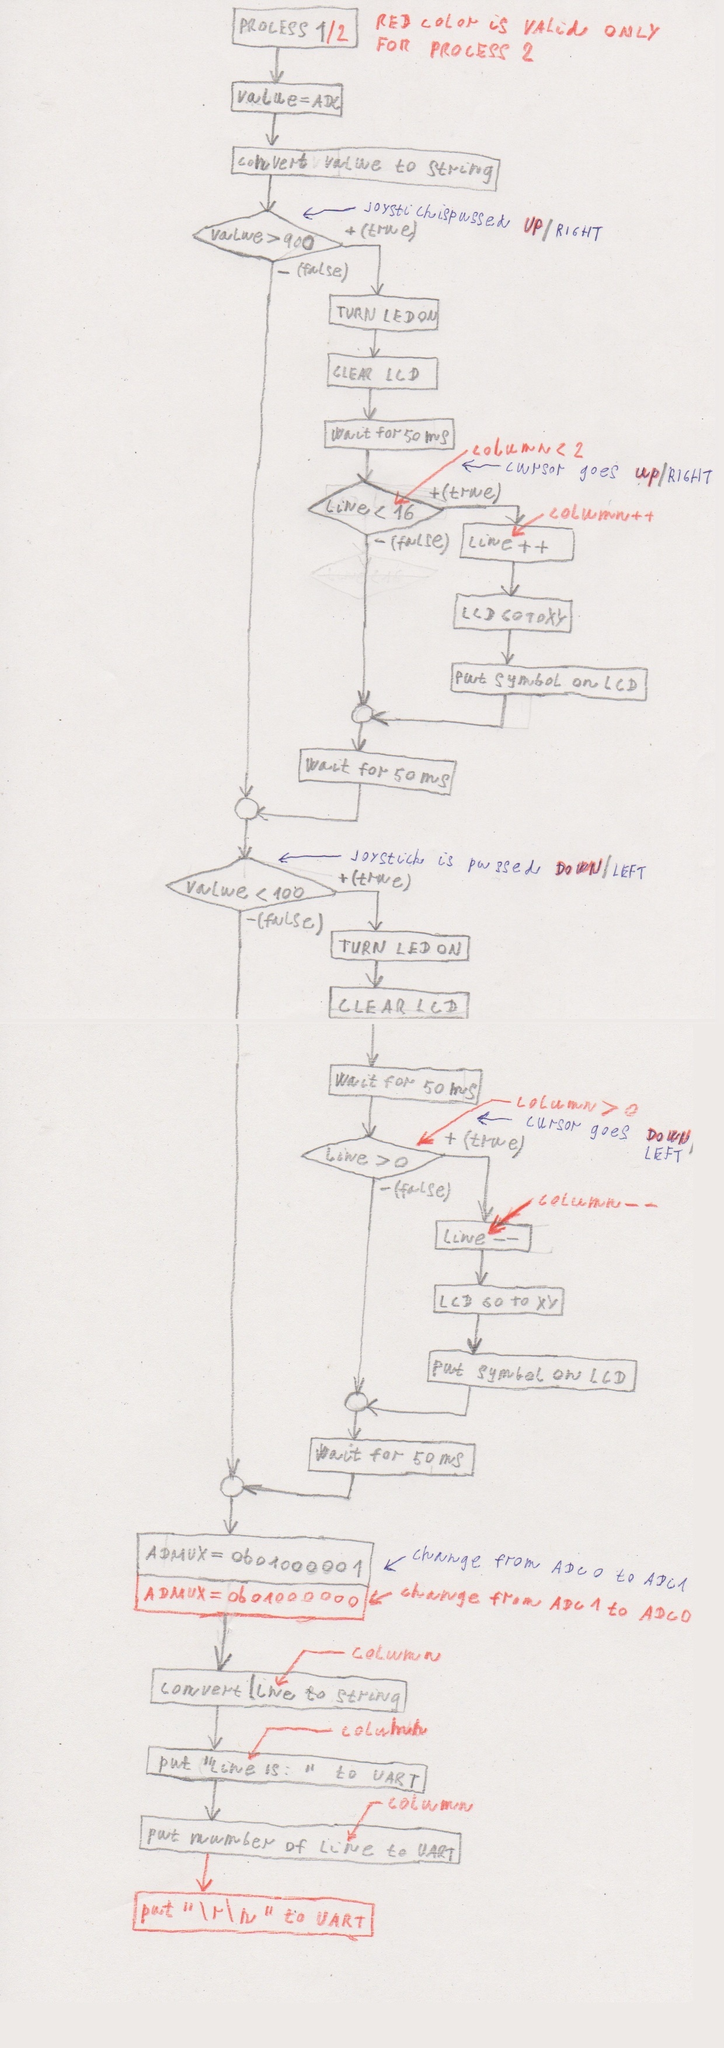 PROCESS 1/2
RED COLOR IS VALID ONLY
FOR PROCESS 2
value=ADC
convert value to string
Joystickispussed UP/RIGHT
value>900
+(true)
-(false)
TURN LED ON
CLEAR LCD
Wait for 50 ms
column<2
cursor goes up/RIGHT
Line<16
+(true)
column++
-(false)
Line++
LCD GO TO XY
put symbol on LCD
Wait for 50 ms
Joystick is pussed DOWN/LEFT
value<100
+(true)
-(false)
TURN LED ON
CLEAR LCD
Wait for 50 ms
column>0
cursor goes DOWN/
LEFT
Line>0
+(true)
-(false)
column--
Line--
LCD GO TO XY
put symbol on LCD
Wait for 50 ms
ADMUX=0b01000001
change from ADC0 to ADC1
ADMUX=0b01000000
change from ADC1 to ADC0
column
convert line to string
column
put "Line is: " to UART
column
put number of Line to UART
put "\r\n" to UART